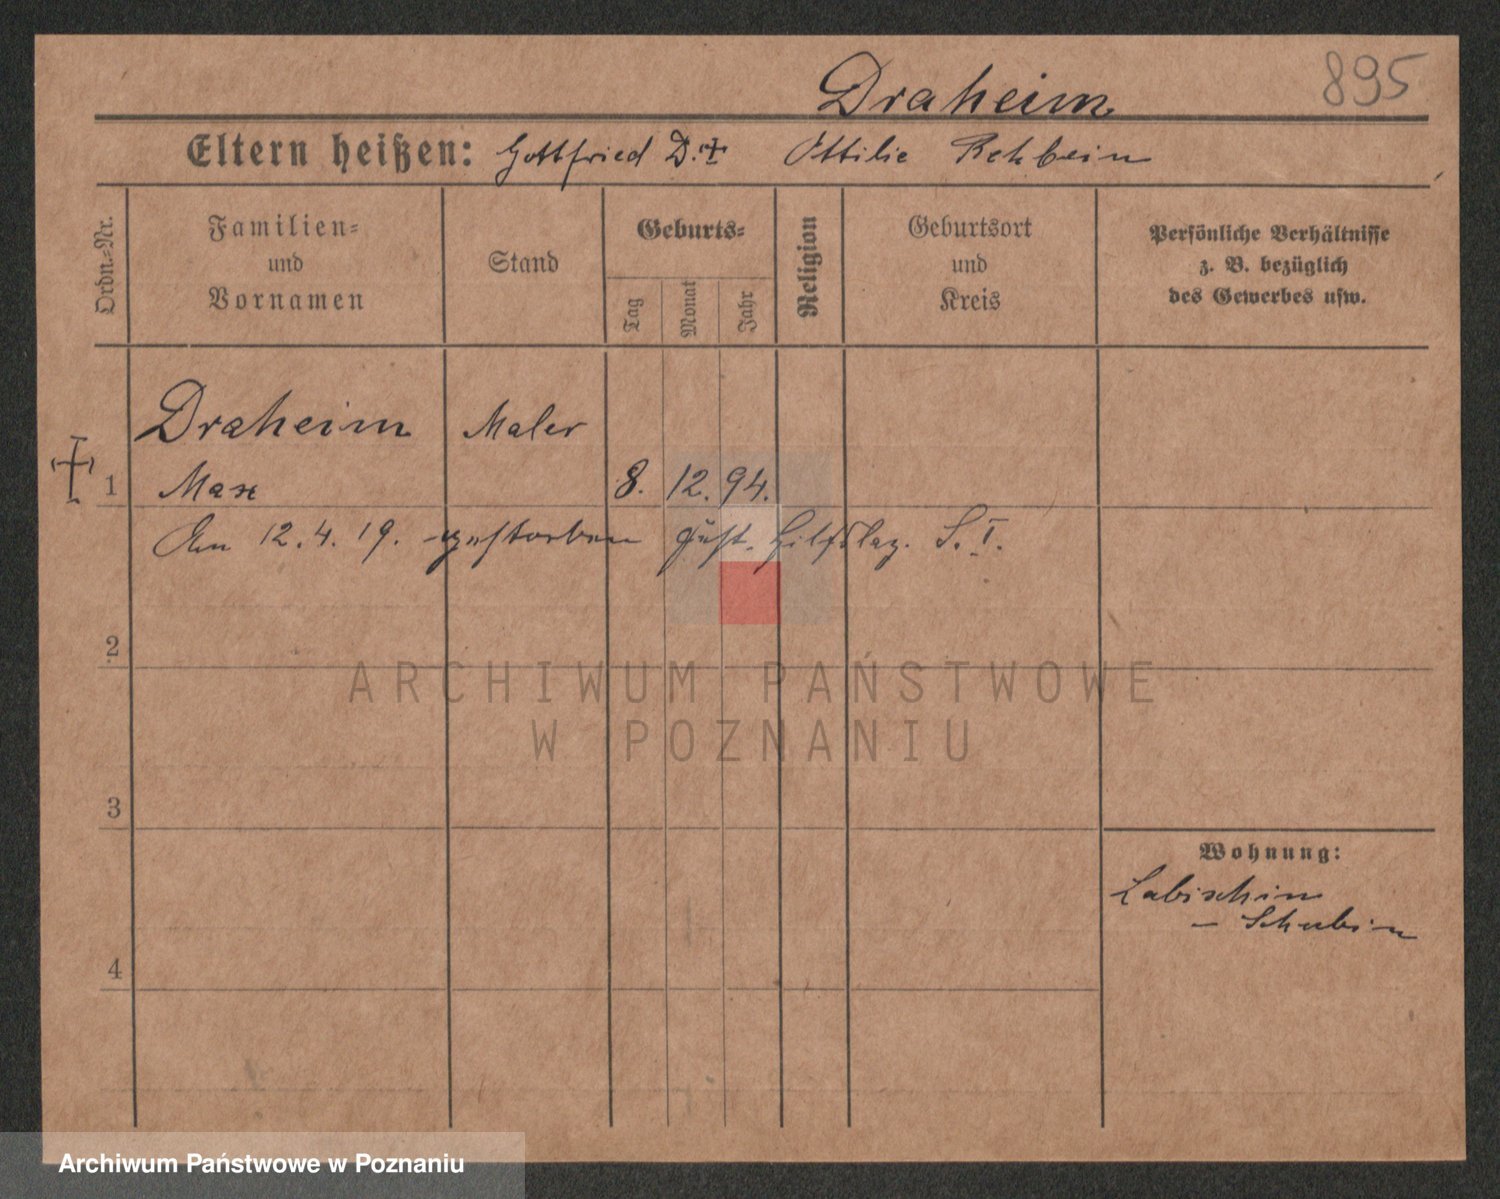 895
Draheim
Eltern heißen: Gottfried D. Ottilie Rehbein
Ordn.-Nr.
Familien-
und
Vornamen
Stand
Geburts-
Tag
Monat
Jahr
Religion
Geburtsort
und
Kreis
Persönliche Verhältnisse
z. B. bezüglich
des Gewerbes usw.
Draheim Maler
1 Max 8. 12. 94.
Am 12. 4. 19. gestorben Hilfslaz. S. I.
2
ARCHIWUM PAŃSTWOWE
W POZNANIU
3
Wohnung:
Labischin
– Schubin
4
Archiwum Państwowe w Poznaniu